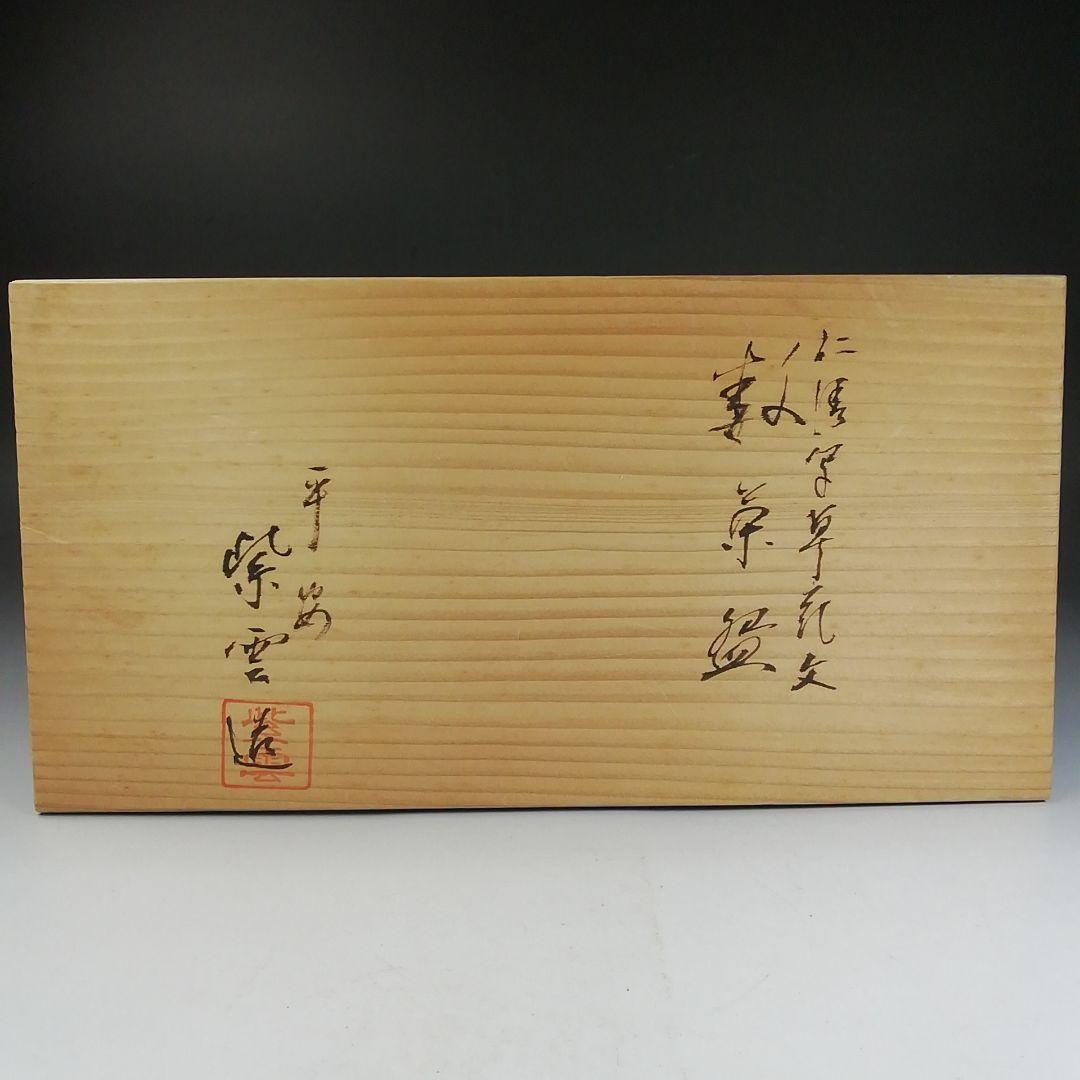 仁清写草花文
数菓盆
平安
紫雲造
紫雲